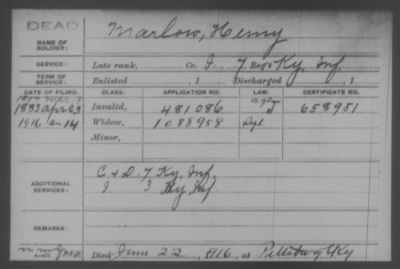 DEAD
NAME OF SOLDIER: Marlow, Henry
SERVICE: Late rank, Co. I, 7 Reg't Ky. Inf
TERM OF SERVICE: Enlisted , 1 Discharged , 1
DATE OF FILING. CLASS. APPLICATION NO. LAW. CERTIFICATE NO.
1883 Apr 23 Invalid, 481086 658981
1916 14 Widow, 1088958
Minor,
ADDITIONAL SERVICES: C & D. 7 Ky. Inf.
I 3 Ky Inf
REMARKS:
Died June 22, 1916, at Pittsburg Ky